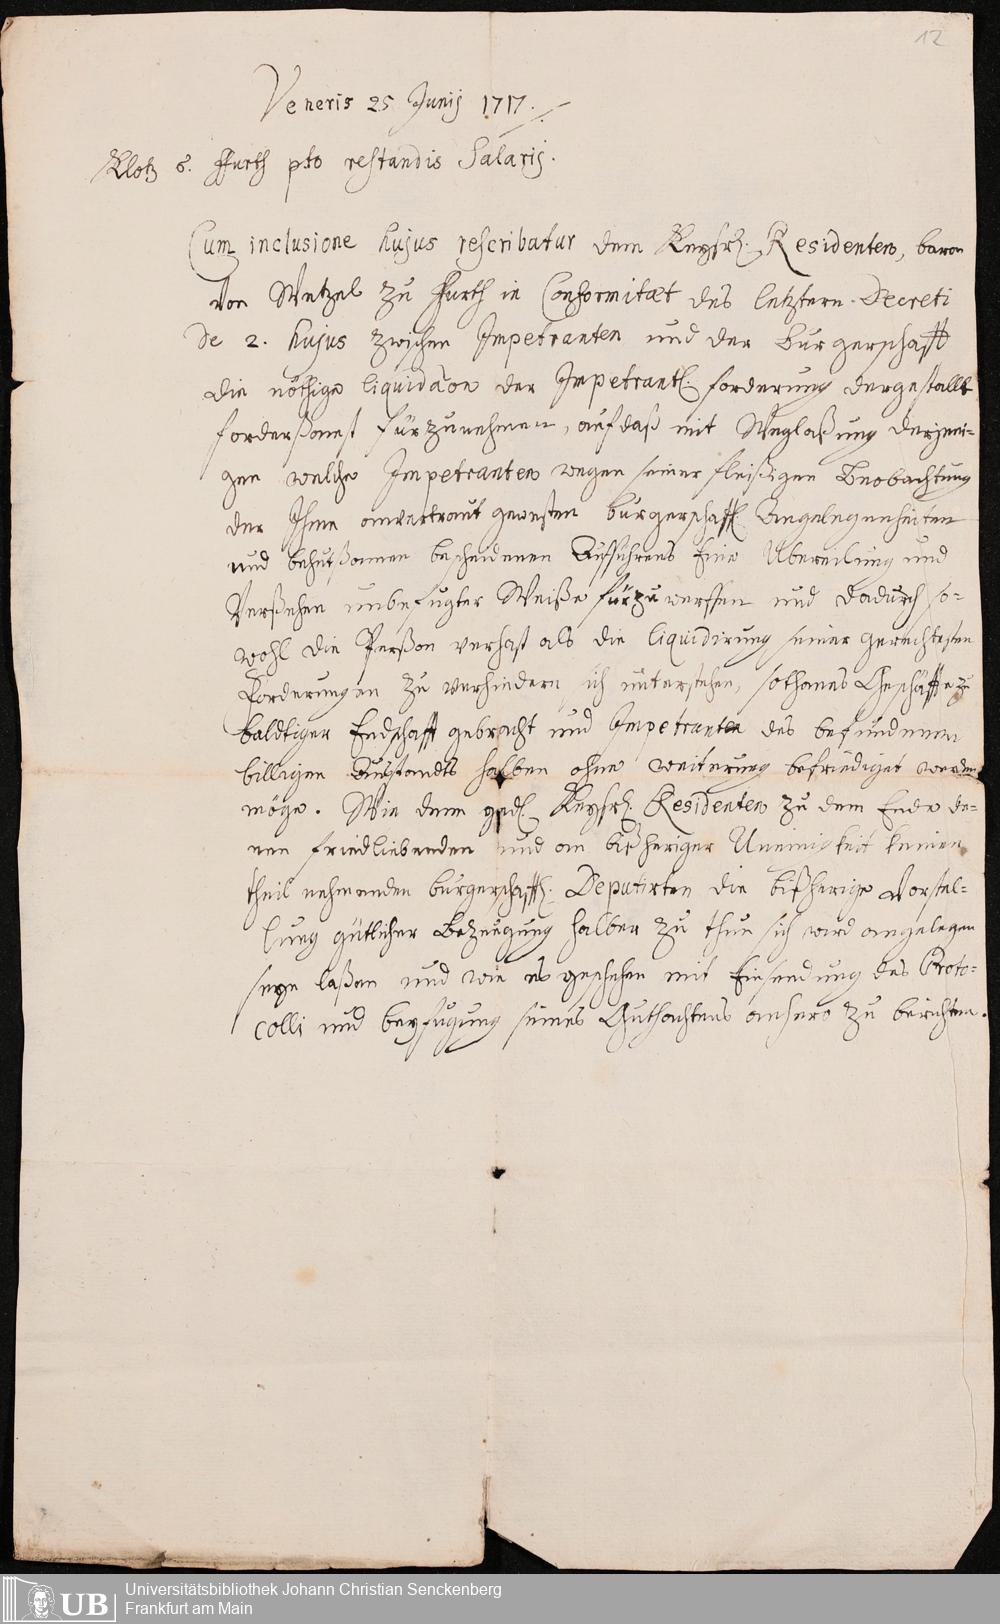 12
Veneris 25 Junij 1717.
Klotz c. ffurth pto restandis Salarij.
Cum inclusione hujus rescribatur dem Keysrl. Residenten, baron
von Wetzel zu ffurth in Conformitæt des letztern Decreti
de 2. hujus zwischen Impetranten und der Burgerschafft
die nöthige liquidaon der Impetrantl. forderung dergestallt
forderßamst fürzunehmen, auf daß mit Weglaßung derjeni-
gen welche Impetranten wegen seiner fleißigen Beobachtung
der Ihme anvertraut gewesten burgerschafftl. Angelegenheiten
und behutßamen bescheidenen Aufführens Eine Ubereilung und
Verßehen unbefugter Weiße fürzuwerffen und dadurch so-
wohl die Perßon verhast als die liquidirung seiner gerechtesten
Forderungen zu verhindern sich unterstehen, sothanes Geschäffte zu
baldtiger Endschafft gebracht und Impetranten des befundenen
billigen Ausstandts halben ohne weiterung befriediget werden
möge. Wie dem gedl. Keysrl. Residenten zu dem Ende de-
nen friedliebenden und an bißheriger Uneinigkeit keinen
theil nehmenden burgerschafftl. Deputirten die bißherige Vorstel-
lung gütlicher Bezeugung halber zu thun sich wird angelegen
seyn laßen und wie es geschehen mit Einsendung des Proto-
colli und beyfügung seines Guthachtens anhero zu berichten.
UB
Universitätsbibliothek Johann Christian Senckenberg
Frankfurt am Main